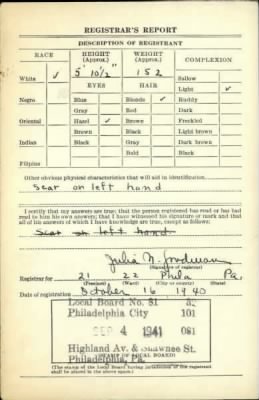 REGISTRAR'S REPORT
DESCRIPTION OF REGISTRANT
RACE HEIGHT (Approx.) WEIGHT (Approx.) COMPLEXION
5' 10½" 152 Sallow
White ✓ EYES HAIR Light ✓
Negro Blue Blonde ✓ Ruddy
Gray Red Dark
Oriental Hazel ✓ Brown Freckled
Brown Black Light brown
Indian Black Gray Dark brown
Bald Black
Filipino
Other obvious physical characteristics that will aid in identification
Scar on left hand
I certify that my answers are true; that the person registered has read or has had
read to him his own answers; that I have witnessed his signature or mark and that
all of his answers of which I have knowledge are true, except as follows:
Scar on left hand
Julia N.
(Signature of registrar)
Registrar for 21 22 Phila Pa.
(Precinct) (Ward)
Date of registration October 16 1940
Local Board No. 81 32
Philadelphia City 101
SEP 4 1941 081
Highland Av. & Shawnee St.
Philadelphia, Pa.
(STAMP OF LOCAL BOARD)
(The stamp of the Local Board having jurisdiction of the registrant
shall be placed in the above space.)